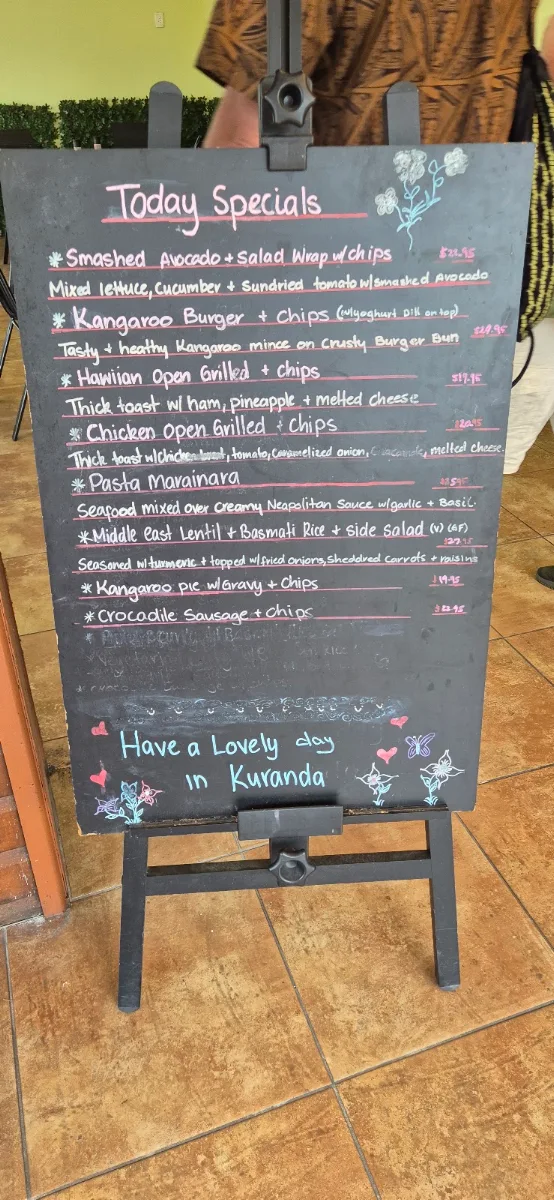 Today Specials
* Smashed Avocado + Salad Wrap w/ chips $22.95
Mixed lettuce, Cucumber + Sundried tomato w/ smashed Avocado
* Kangaroo Burger + Chips (w/yoghurt Dill on top)
Tasty + healthy Kangaroo mince on Crusty Burger Bun
* Hawiian Open Grilled + chips $19.95
Thick toast w/ ham, pineapple + melted cheese
* Chicken Open Grilled + chips
Thick toast w/chicken, tomato, Caramelized onion, melted cheese.
* Pasta Marainara
Seafood mixed over creamy Neapolitan Sauce w/garlic + Basil.
* Middle east Lentil + Basmati Rice + side salad (V) (GF)
Seasoned w/ turmeric + topped w/ fried onions, Sheddred Carrots + raisins
* Kangaroo pie w/Gravy + chips $19.95
* Crocadile Sausage + chips
Have a Lovely day
in Kuranda